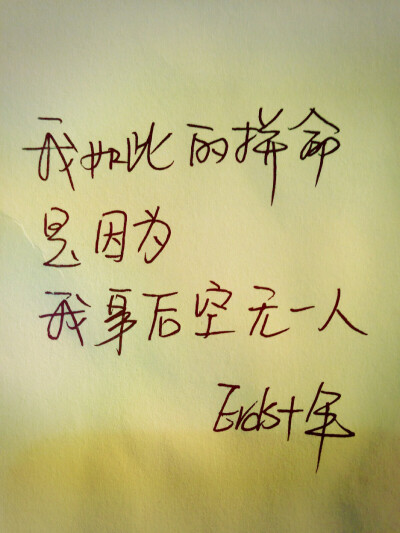 我如此的拼命
是因为
我事后空无一人
Erds十年